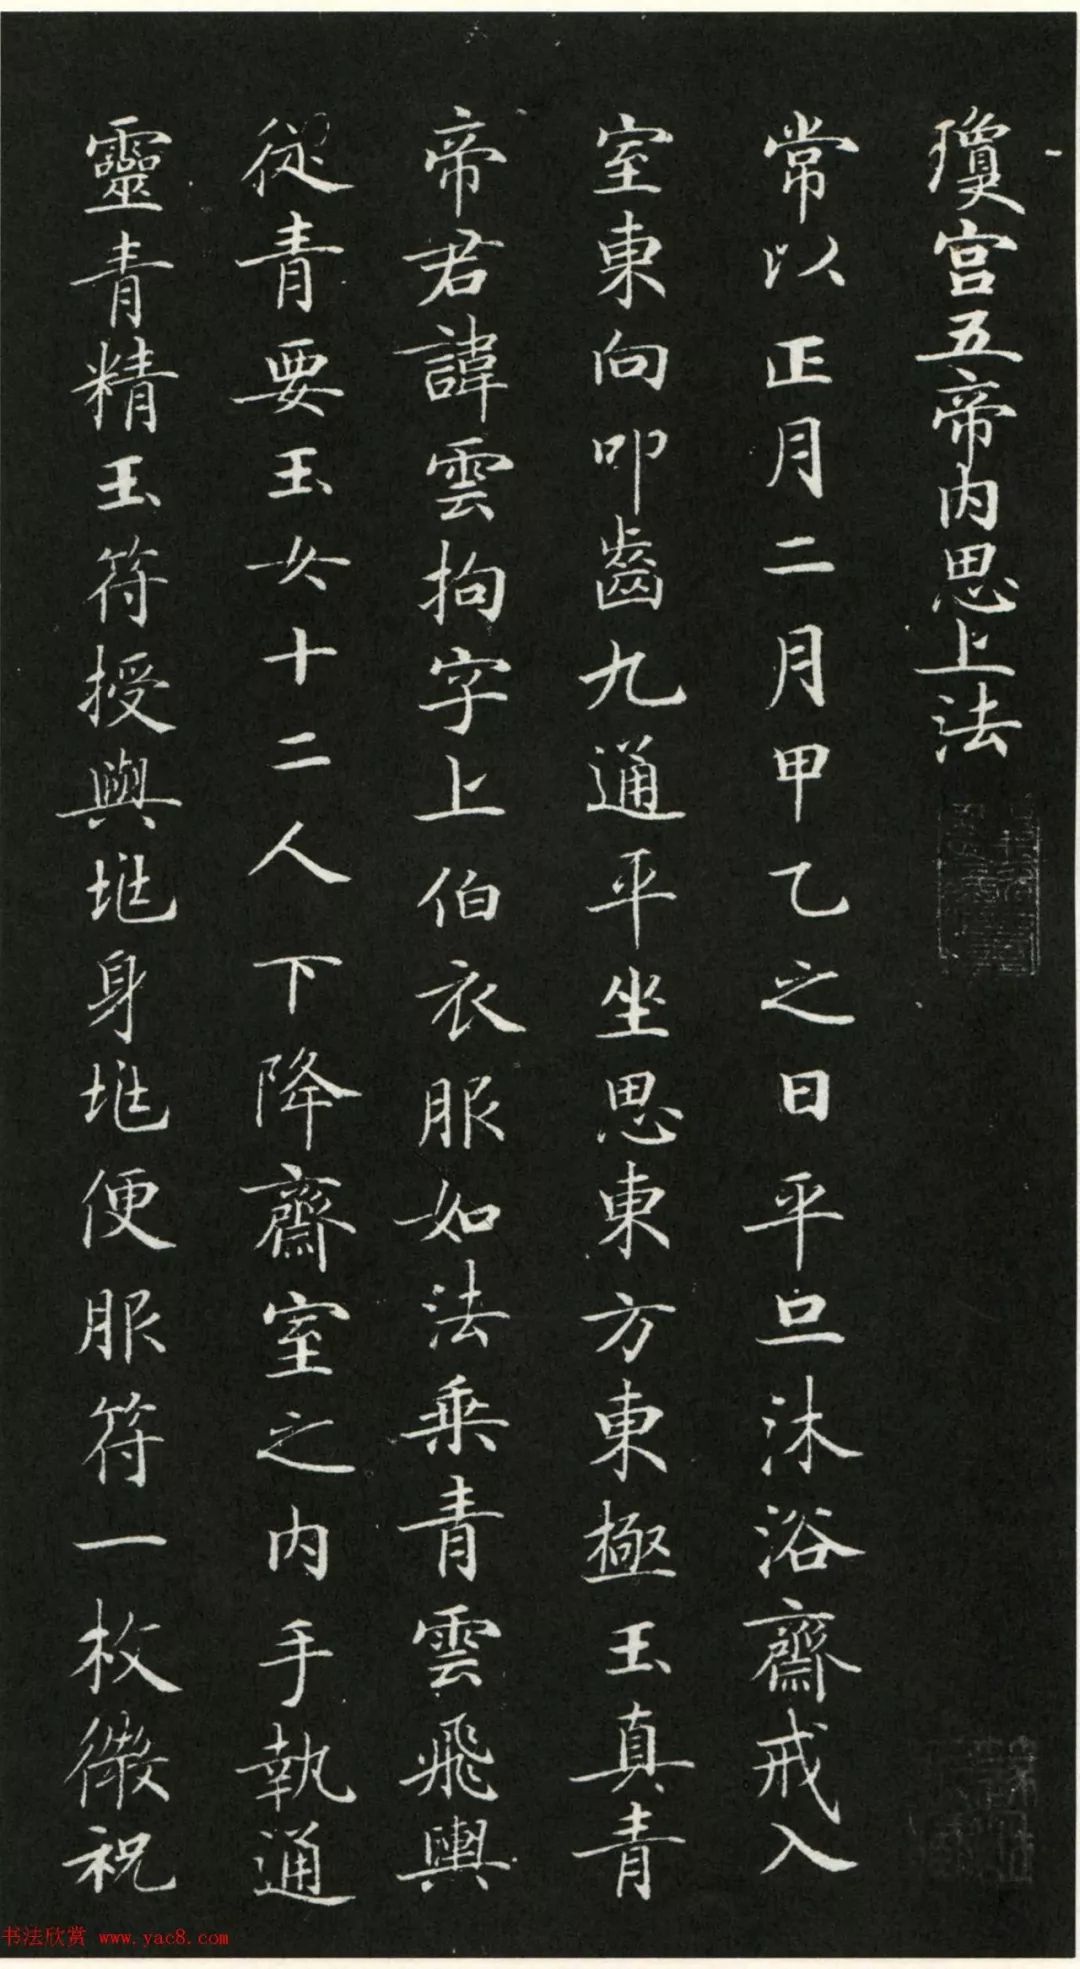 瓊宮五帝内思上法
常以正月二月甲乙之日平旦沐浴齋戒入
室東向叩齒九通平坐思東方東極玉真青
帝君諱雲拘字上伯衣服如法乗青雲飛輿
從青要玉女十二人下降齋室之内手執通
靈青精玉符授與兆身兆便服符一枚微祝
书法欣赏 www.yac8.com